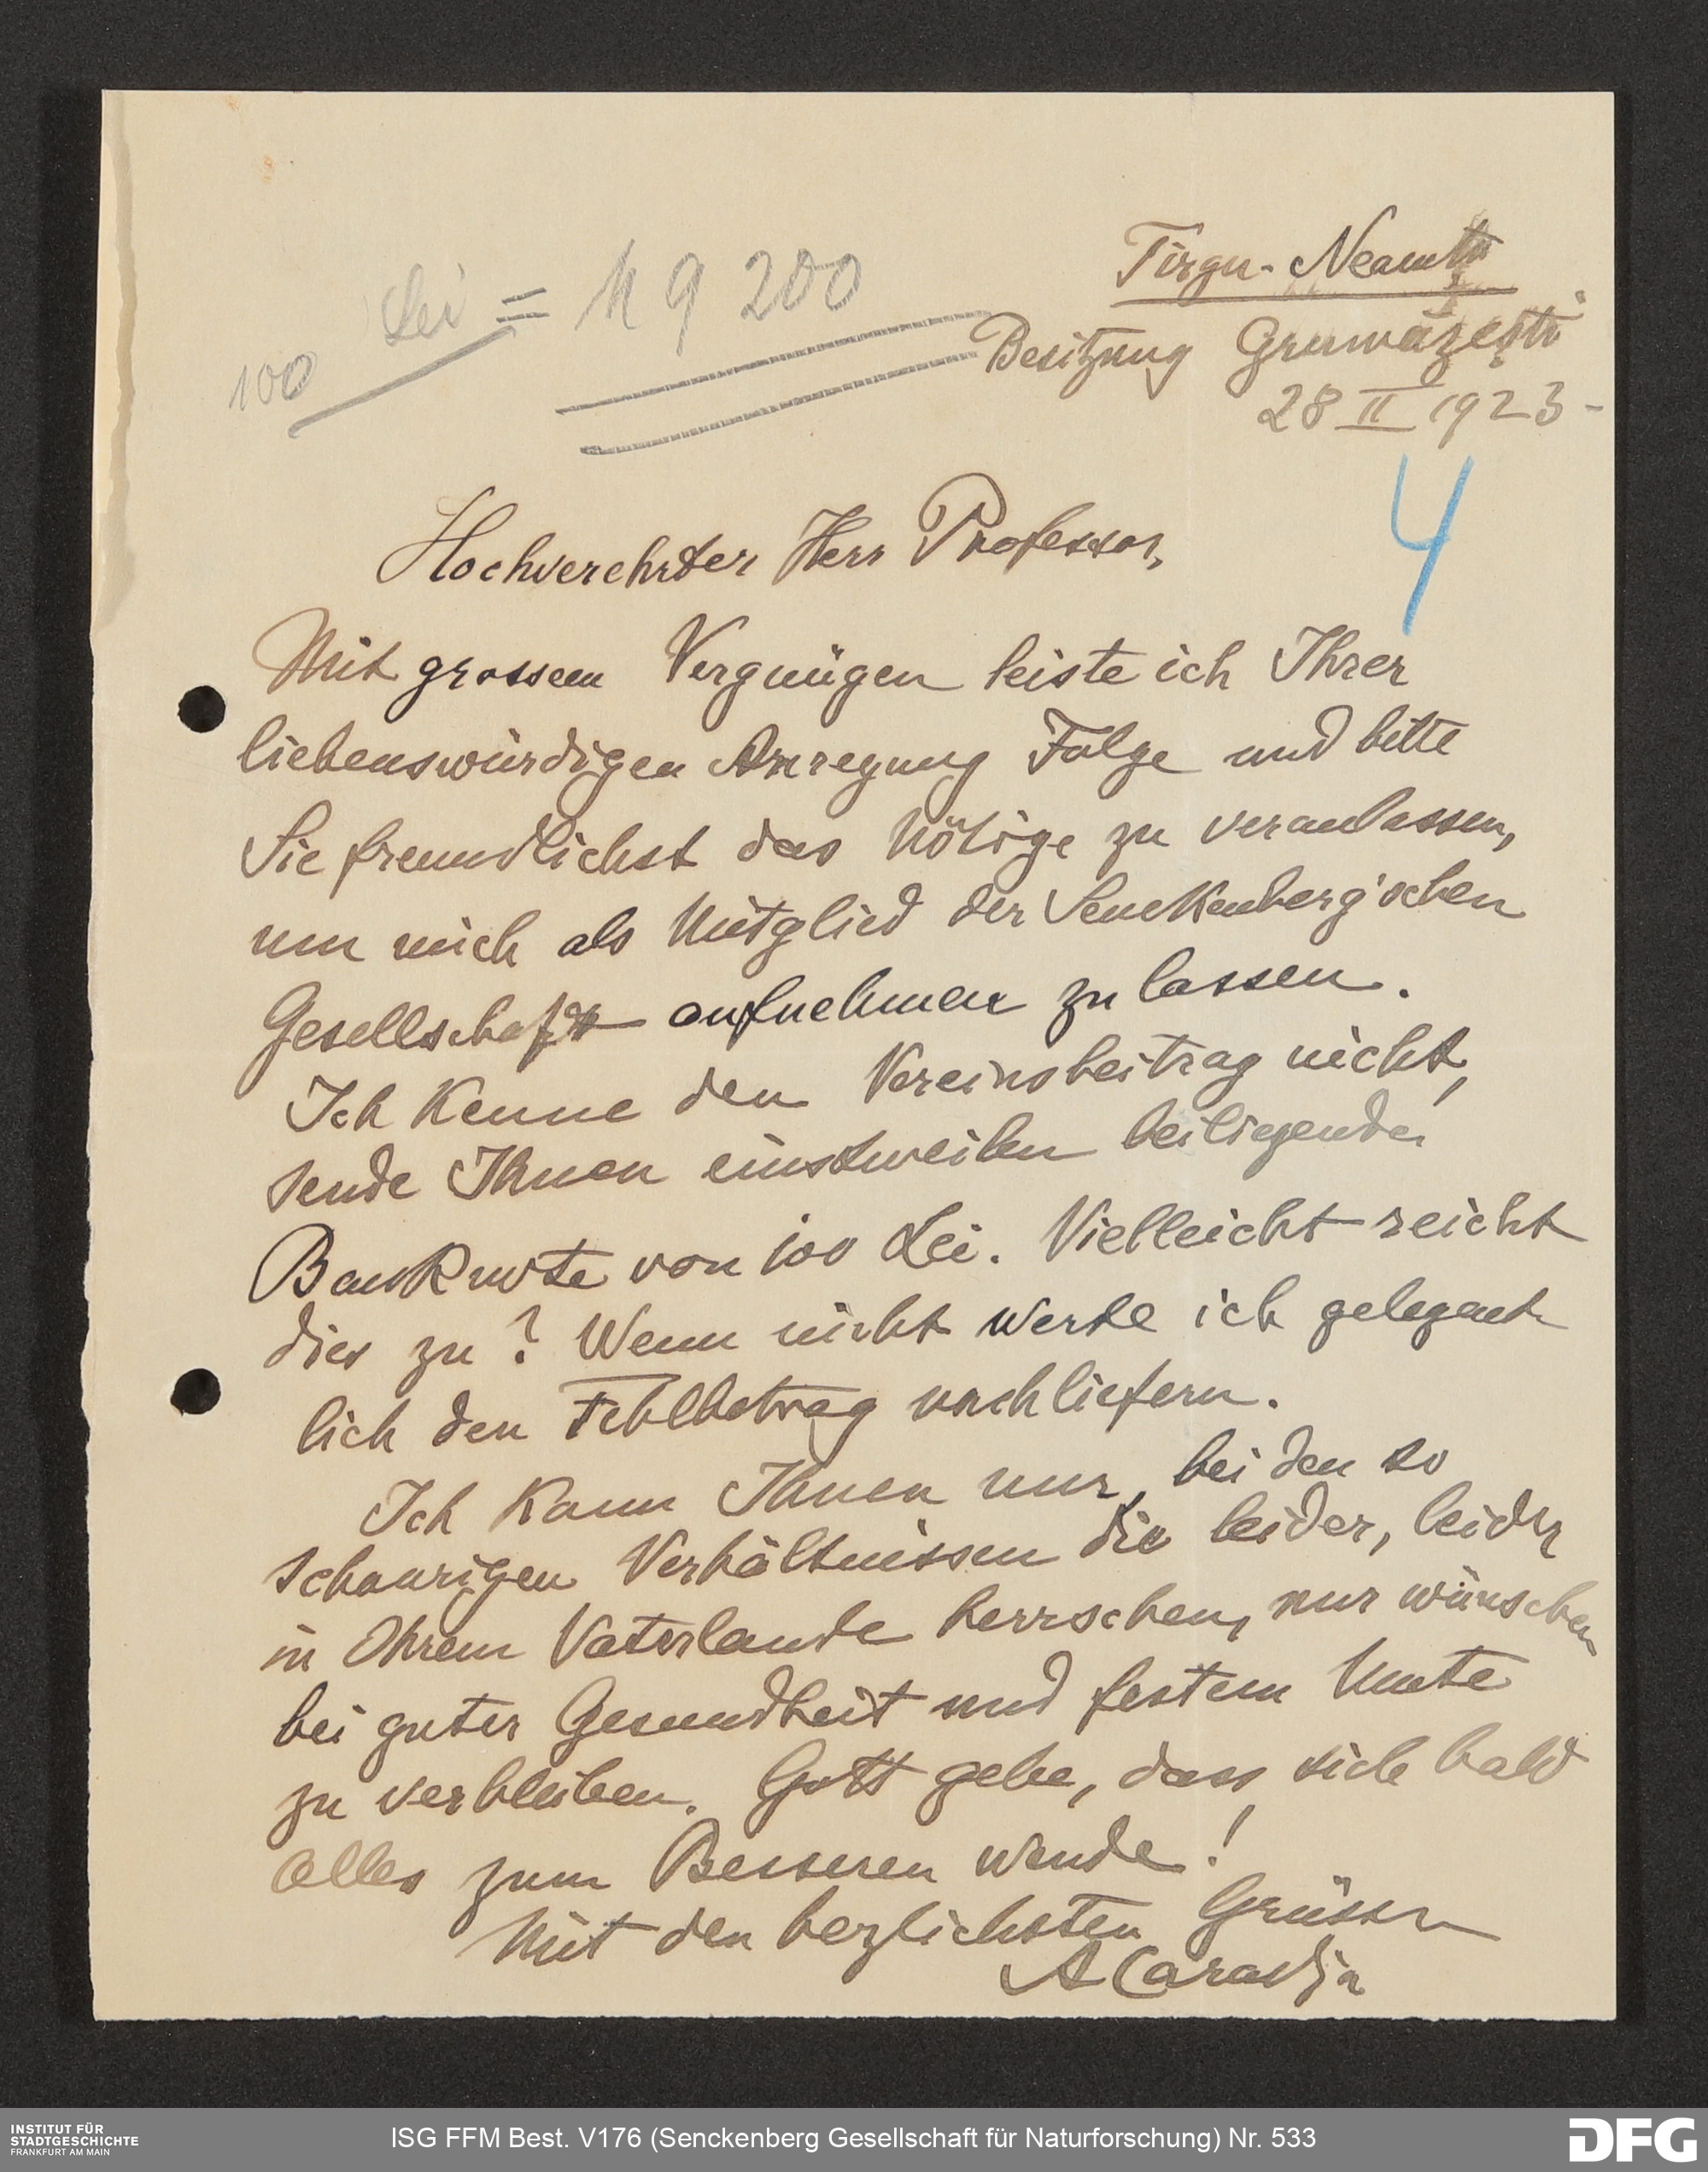 100 Lei = M 9 200
Tirgu-Neamtu
Besitzung Grumăzești
28 II 1923-
4
Hochverehrter Herr Professor,
Mit grossem Vergnügen leiste ich Ihrer
liebenswürdigen Anregung Folge und bitte
Sie freundlichst das Nötige zu veranlassen,
um mich als Mitglied der Senckenberg'schen
Gesellschaft aufnehmen zu lassen.
Ich kenne den Vereinsbeitrag nicht,
sende Ihnen einstweilen beiliegende
Banknote von 100 Lei. Vielleicht reicht
dies zu? Wenn nicht werde ich gelegent
lich den Fehlbetrag nachliefern.
Ich kann Ihnen nur, bei den so
schaurigen Verhältnissen die leider, leider
in Ihrem Vaterlande herrschen, nur wünschen
bei guter Gesundheit und festem Mute
zu verbleiben. Gott gebe, dass sich bald
alles zum Besseren wende!
Mit den herzlichsten Grüssen
A Caradja
INSTITUT FÜR
STADTGESCHICHTE
FRANKFURT AM MAIN
ISG FFM Best. V176 (Senckenberg Gesellschaft für Naturforschung) Nr. 533
DFG